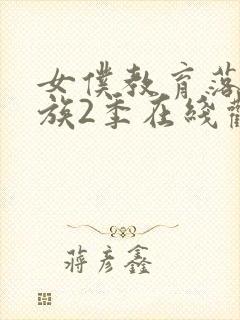 女僕教育落
族2季在綫觀
蔣彦鑫